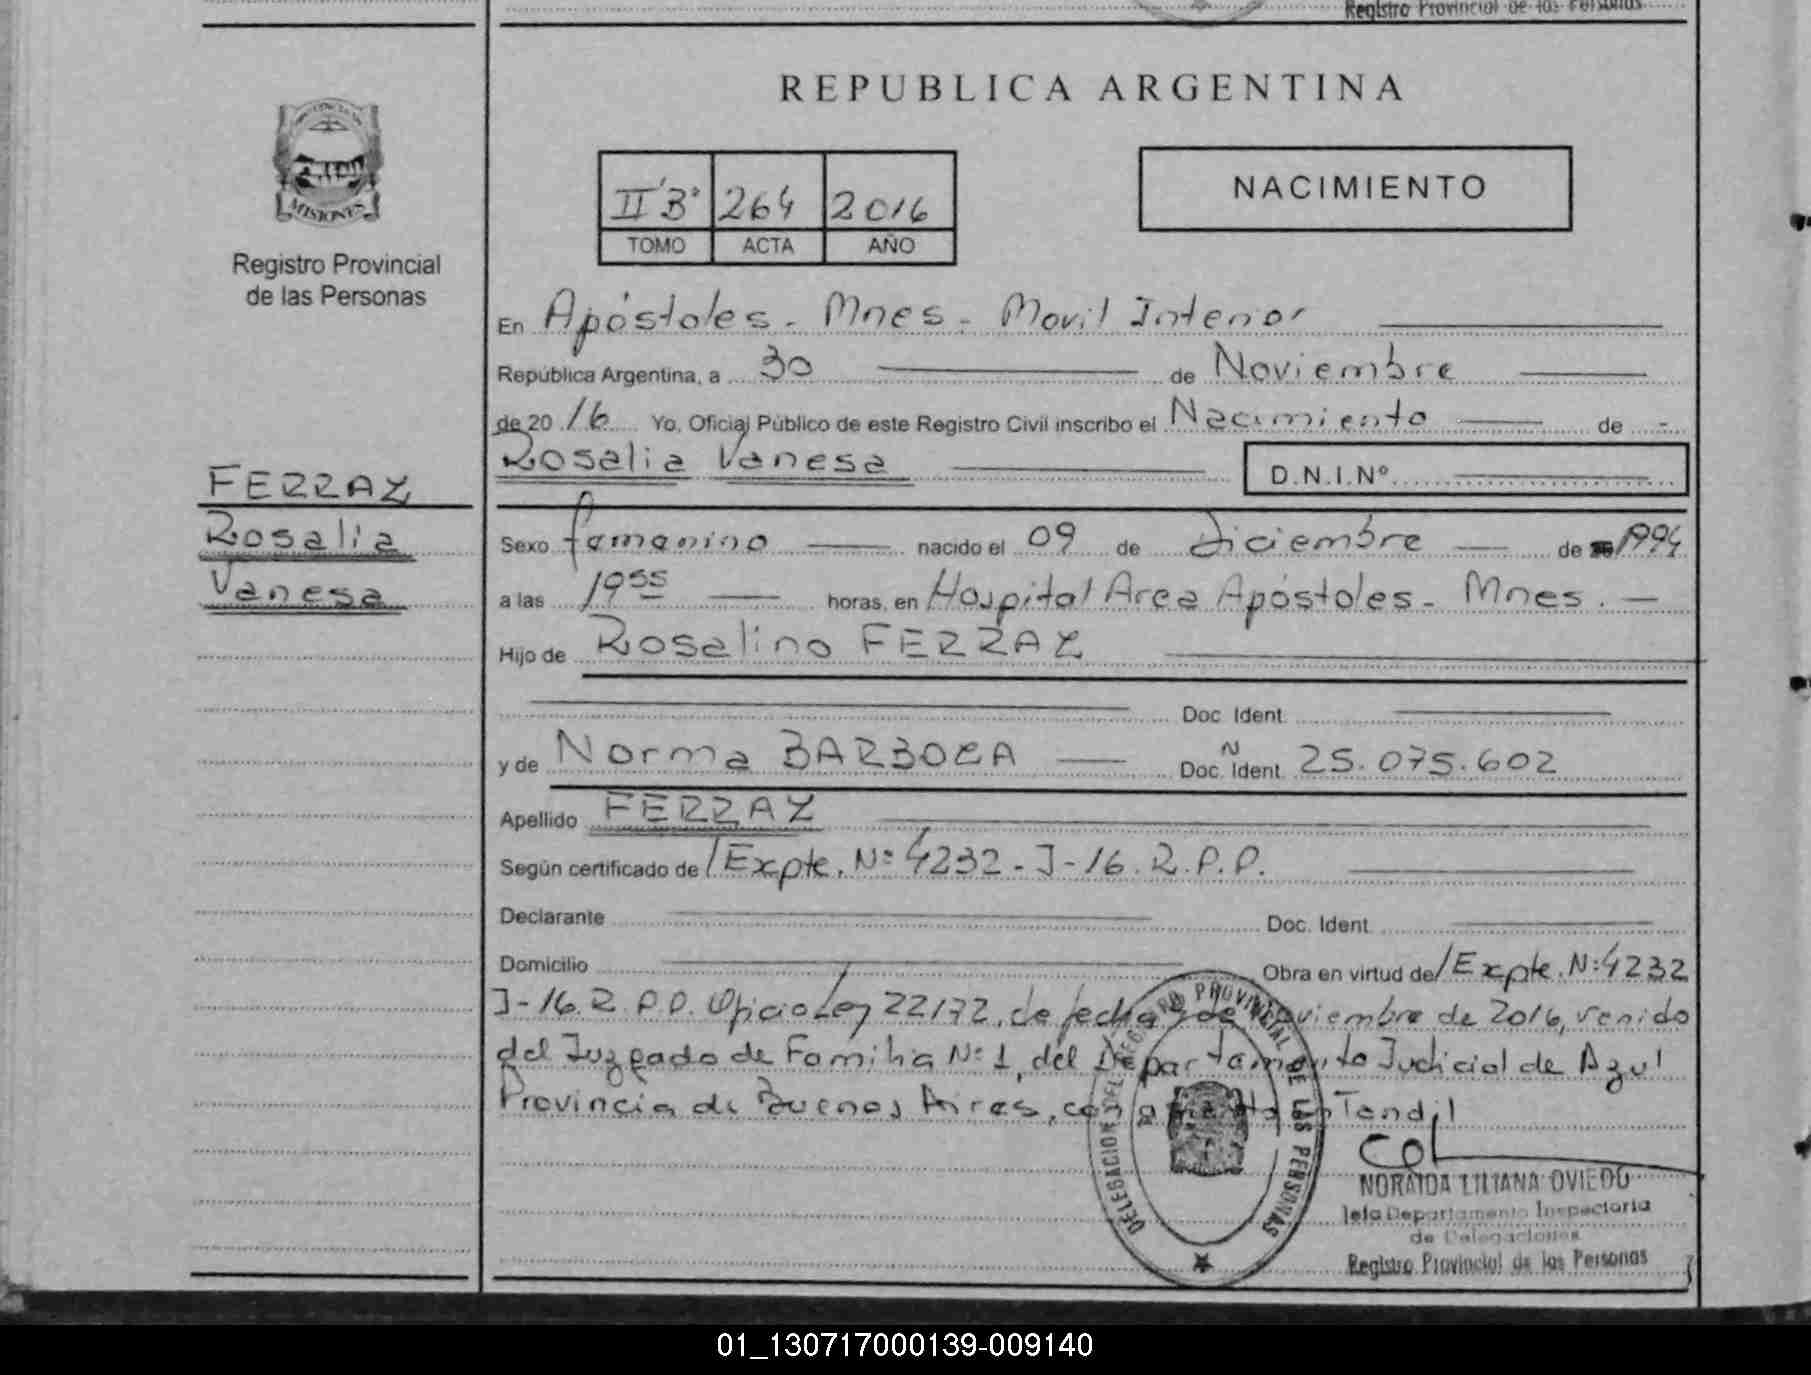 Registro Provincial de las Personas
REPUBLICA ARGENTINA
MISIONES
Registro Provincial
de las Personas
II B° 264 2016
TOMO ACTA AÑO
NACIMIENTO
En Apóstoles - Mnes - Movil Interior
República Argentina, a 30 de Noviembre
de 20 16 Yo, Oficial Público de este Registro Civil inscribo el Nacimiento de
Rosalia Vanesa D.N.I.Nº
FERRAZ
Rosalia
Vanesa
Sexo femenino nacido el 09 de diciembre de 1994
a las 19 55 horas, en Hospital Area Apóstoles - Mnes.
Hijo de Rosalino FERRAZ
Doc. Ident.
y de Norma BARBOZA Doc. Ident. Ñ 25.075.602
Apellido FERRAZ
Según certificado de / Expte. Nº 4232 - J - 16. R. P. P.
Declarante Doc. Ident.
Domicilio Obra en virtud de / Expte. Nº 4232
J - 16. R. P. P. Oficio Ley 22172, de fecha de Noviembre de 2016, venido
del Juzgado de Familia Nº 1, del Departamento Judicial de Azul
Provincia de Buenos Aires, con asiento en Tandil
DELEGACION DEL REGISTRO PROVINCIAL DE LAS PERSONAS
NORAIDA LILIANA OVIEDO
Jefa Departamento Inspectoria
de Delegaciones
Registro Provincial de las Personas
01_130717000139-009140